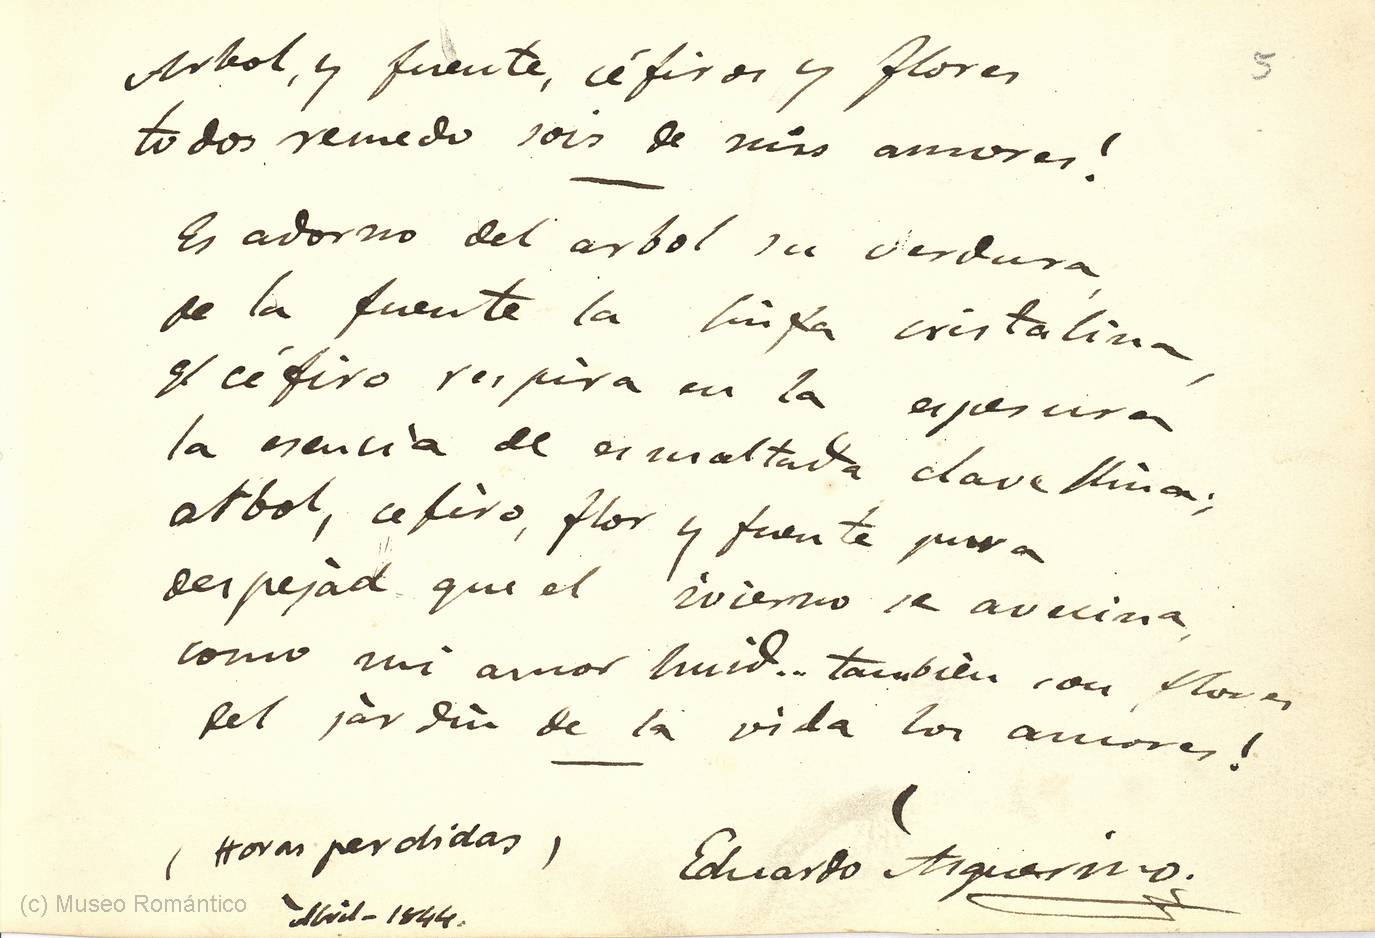 5
Arbol, y fuente, céfiros y flores
todos remedo sois de mis amores!
Es adorno del arbol su verdura,
de la fuente la linfa cristalina,
el céfiro respira en la espesura
la esencia de esmaltada clavellina;
arbol, cefiro, flor y fuente pura
despejad que el ivierno se avecina,
como mi amor huid... tambien son flores
del jardin de la vida los amores!
(Horas perdidas)
Eduardo Asquerino.
Abril - 1844.
(c) Museo Romántico